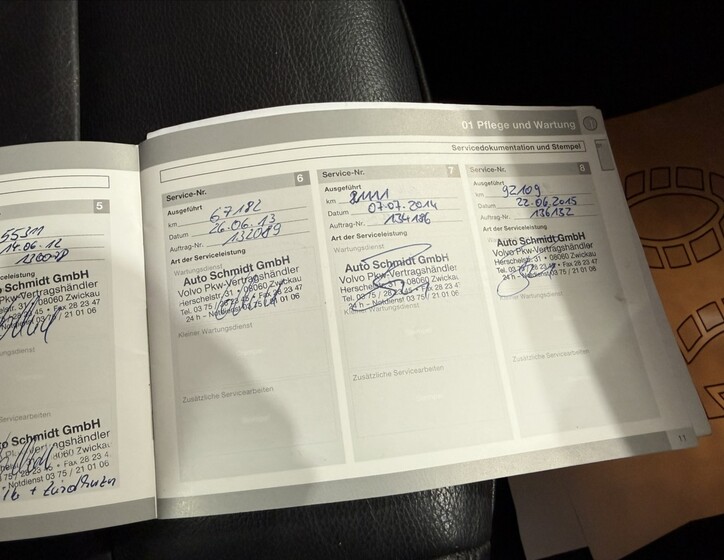 01 Pflege und Wartung
Servicedokumentation und Stempel
5
55311
14.06.12
Serviceleistung
Schmidt GmbH
Pkw-Vertragshändler
08060 Zwickau
Fax 28 23 47
Notdienst 03 75 / 21 01 06
Servicearbeiten
Schmidt GmbH
Vertragshändler
08060 Zwickau
Fax 28 23 4
Notdienst 03 75 / 21 01 06
+ Zündkerzen
Service-Nr. 6
Ausgeführt
km 67182
Datum 26.06.13
Auftrag-Nr. 132089
Art der Serviceleistung
Wartungsdienst
Auto Schmidt GmbH
Volvo Pkw-Vertragshändler
Herschelstr. 31 • 08060 Zwickau
Tel. 03 75 / 28 23 45 • Fax 28 23 47
24 h – Notdienst 03 75 / 21 01 06
Kleiner Wartungsdienst
Zusätzliche Servicearbeiten
Service-Nr. 7
Ausgeführt
km
Datum 07.07.2014
Auftrag-Nr. 134186
Art der Serviceleistung
Wartungsdienst
Auto Schmidt GmbH
Volvo Pkw-Vertragshändler
Herschelstr. 31 • 08060 Zwickau
Tel. 03 75 / 28 23 45 • Fax 28 23 47
24 h – Notdienst 03 75 / 21 01 06
Kleiner Wartungsdienst
Zusätzliche Servicearbeiten
Service-Nr. 8
Ausgeführt
km 92109
Datum 22.06.2015
Auftrag-Nr. 136132
Art der Serviceleistung
Auto Schmidt GmbH
Volvo Pkw-Vertragshändler
Herschelstr. 31 • 08060 Zwickau
Tel. 03 75 / 28 23 45 • Fax 28 23 47
24 h – Notdienst 03 75 / 21 01 06
Kleiner Wartungsdienst
Zusätzliche Servicearbeiten
11